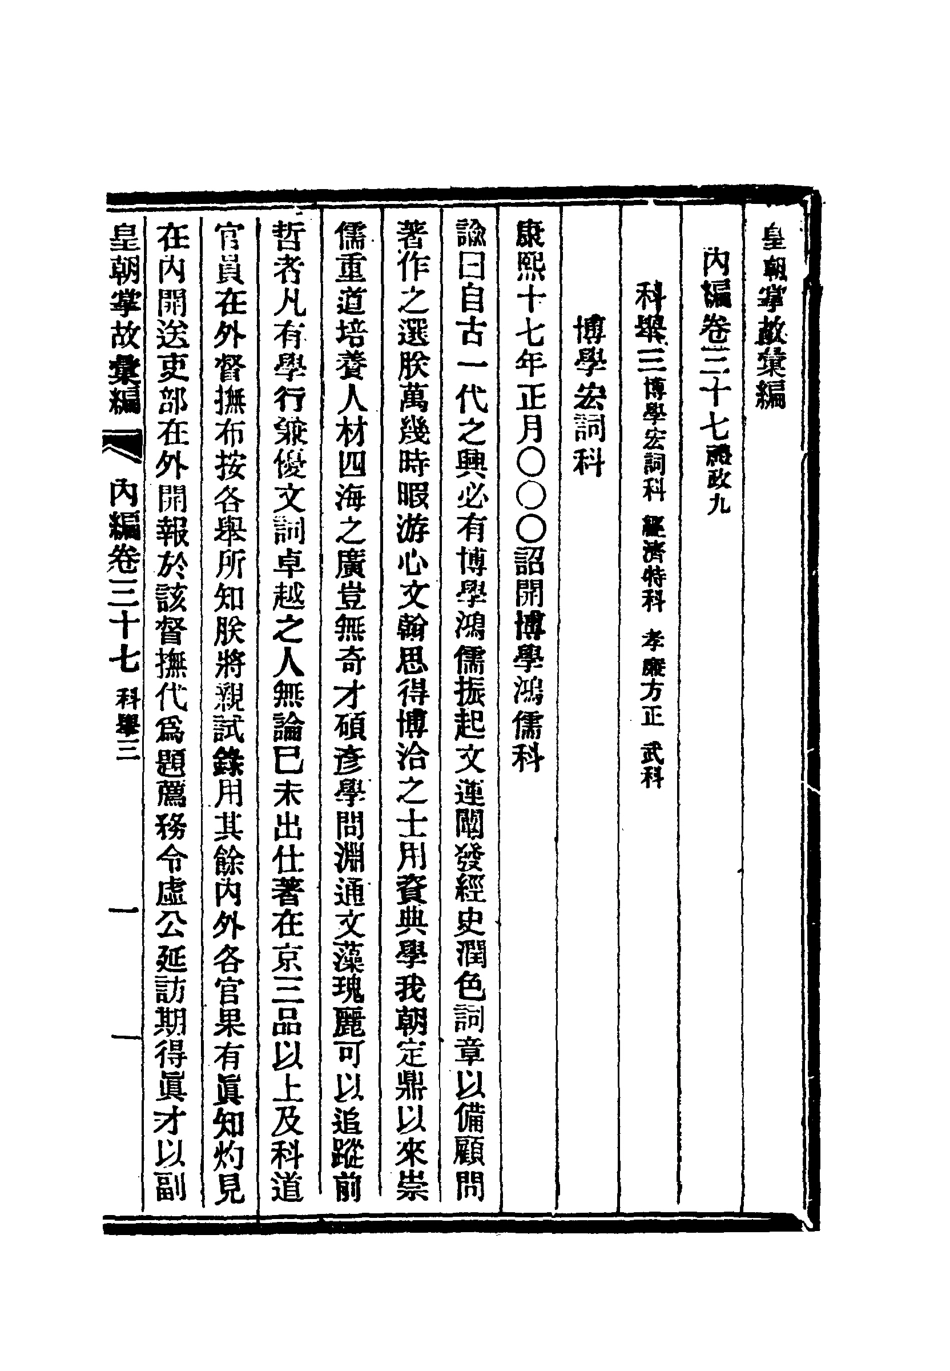 皇朝掌故彙編
內編卷三十七禮政九
科舉三博學宏詞科 經濟特科 孝廉方正 武科
博學宏詞科
康熙十七年正月〇〇〇詔開博學鴻儒科
諭曰自古一代之興必有博學鴻儒振起文運闡發經史潤色詞章以備顧問
著作之選朕萬幾時暇游心文翰思得博洽之士用資典學我朝定鼎以來崇
儒重道培養人材四海之廣豈無奇才碩彥學問淵通文藻瑰麗可以追蹤前
哲者凡有學行兼優文詞卓越之人無論已未出仕著在京三品以上及科道
官員在外督撫布按各舉所知朕將親試錄用其餘內外各官果有眞知灼見
在內開送吏部在外開報於該督撫代爲題薦務令虛公延訪期得眞才以副
皇朝掌故彙編 內編卷三十七 科舉三 一